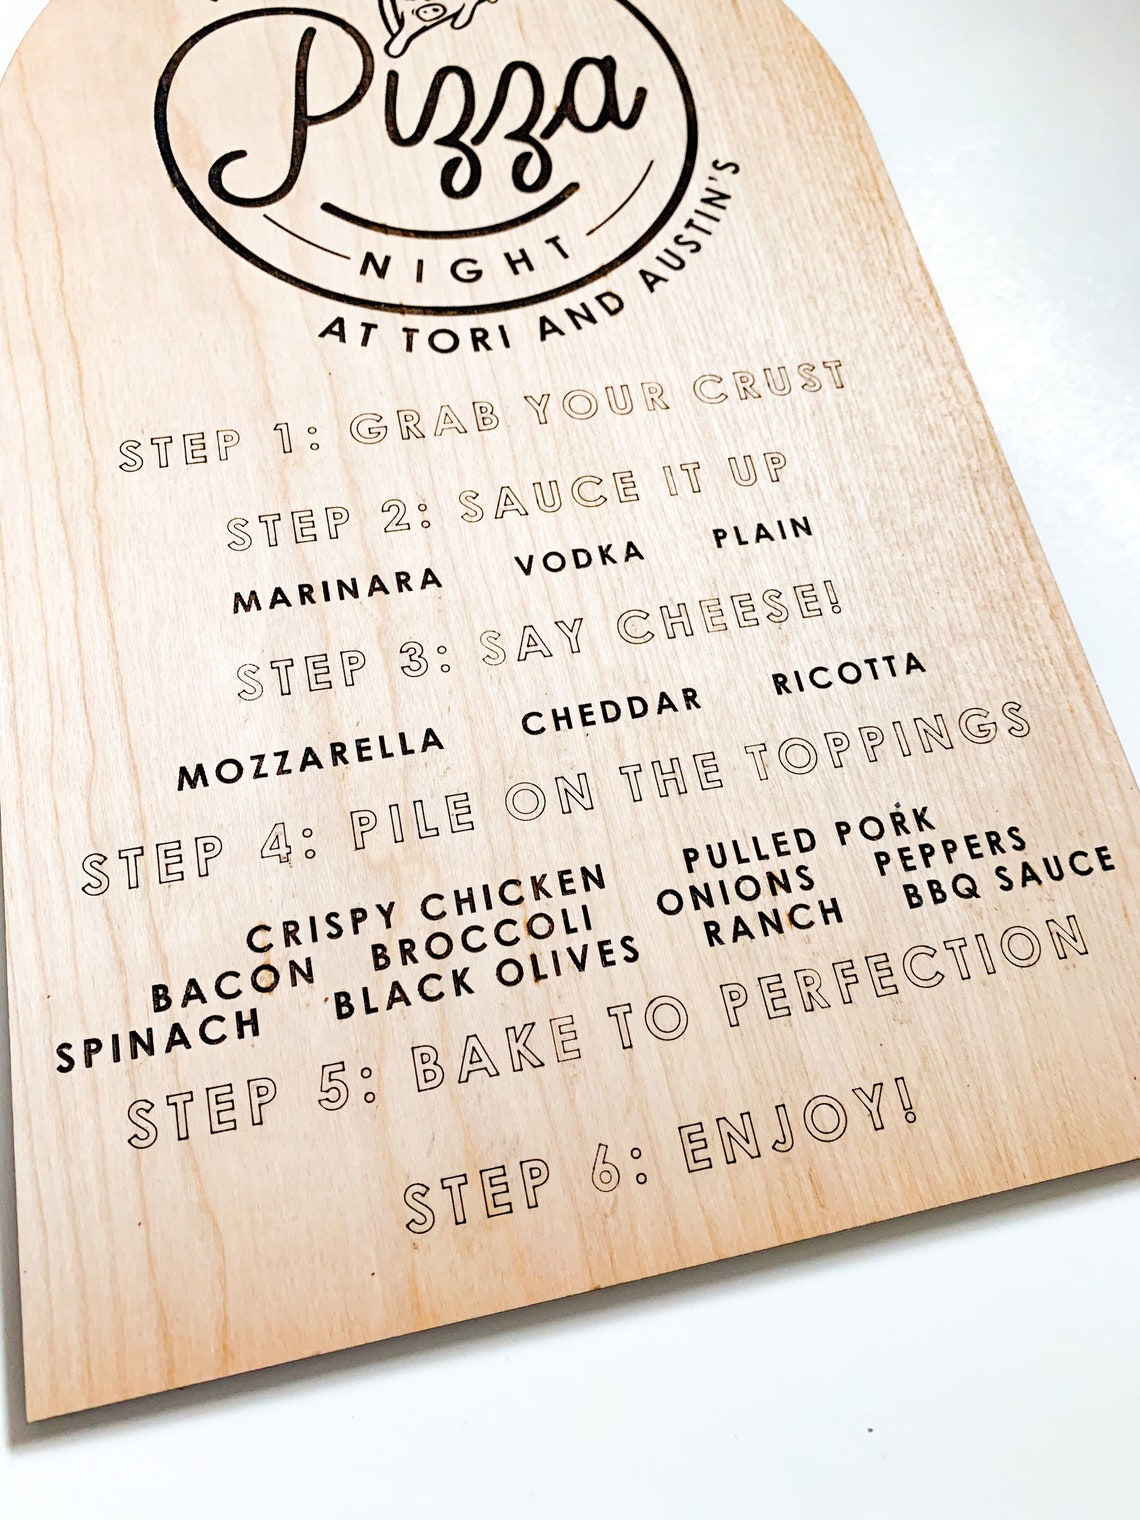 Pizza
NIGHT
AT TORI AND AUSTIN'S
STEP 1: GRAB YOUR CRUST
STEP 2: SAUCE IT UP
MARINARA VODKA PLAIN
STEP 3: SAY CHEESE!
MOZZARELLA CHEDDAR RICOTTA
STEP 4: PILE ON THE TOPPINGS
CRISPY CHICKEN PULLED PORK
BACON BROCCOLI ONIONS PEPPERS
SPINACH BLACK OLIVES RANCH BBQ SAUCE
STEP 5: BAKE TO PERFECTION
STEP 6: ENJOY!